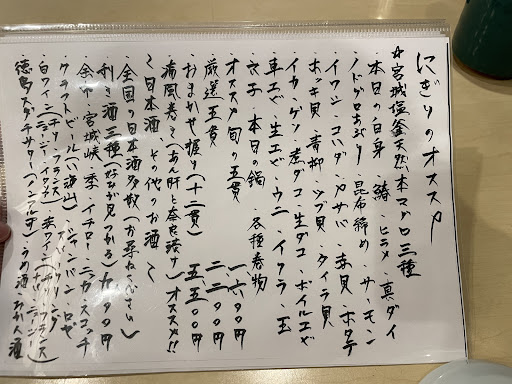 にぎりのオススメ
☆宮城塩釜天然本マグロ三種
・本日の白身 鰆・ヒラメ・真ダイ
・ノドグロあぶり・昆布締め・サーモン
・イワシ・コハダ・アカサバ・赤貝・ホタテ
・ホッキ貝・青柳・ツブ貝・タイラ貝
・イカ・ゲソ・煮ダコ・生ダコ・ボイルエビ
・車エビ・生エビ・ウニ・イクラ・玉
・穴子・本日の鍋・各種巻物
・オススメ旬の五貫 一六〇〇円
・厳選五貫 二二〇〇円
・おまかせ握り(十二貫) 五五〇〇円
・痛風巻き(あん肝と奈良漬け)オススメ!!
〜日本酒・その他のお酒〜
・全国の日本酒多数(お尋ねください)
・利き酒三種(好みが見つかる)
・宮城峡・季・イチロー・ニッカ・スコッチ
・クラフトビール・シャンパン・ロゼ
・白ワイン 赤ワイン
・徳島スダチサワー(ノンアル可)・うめ酒・みかん酒